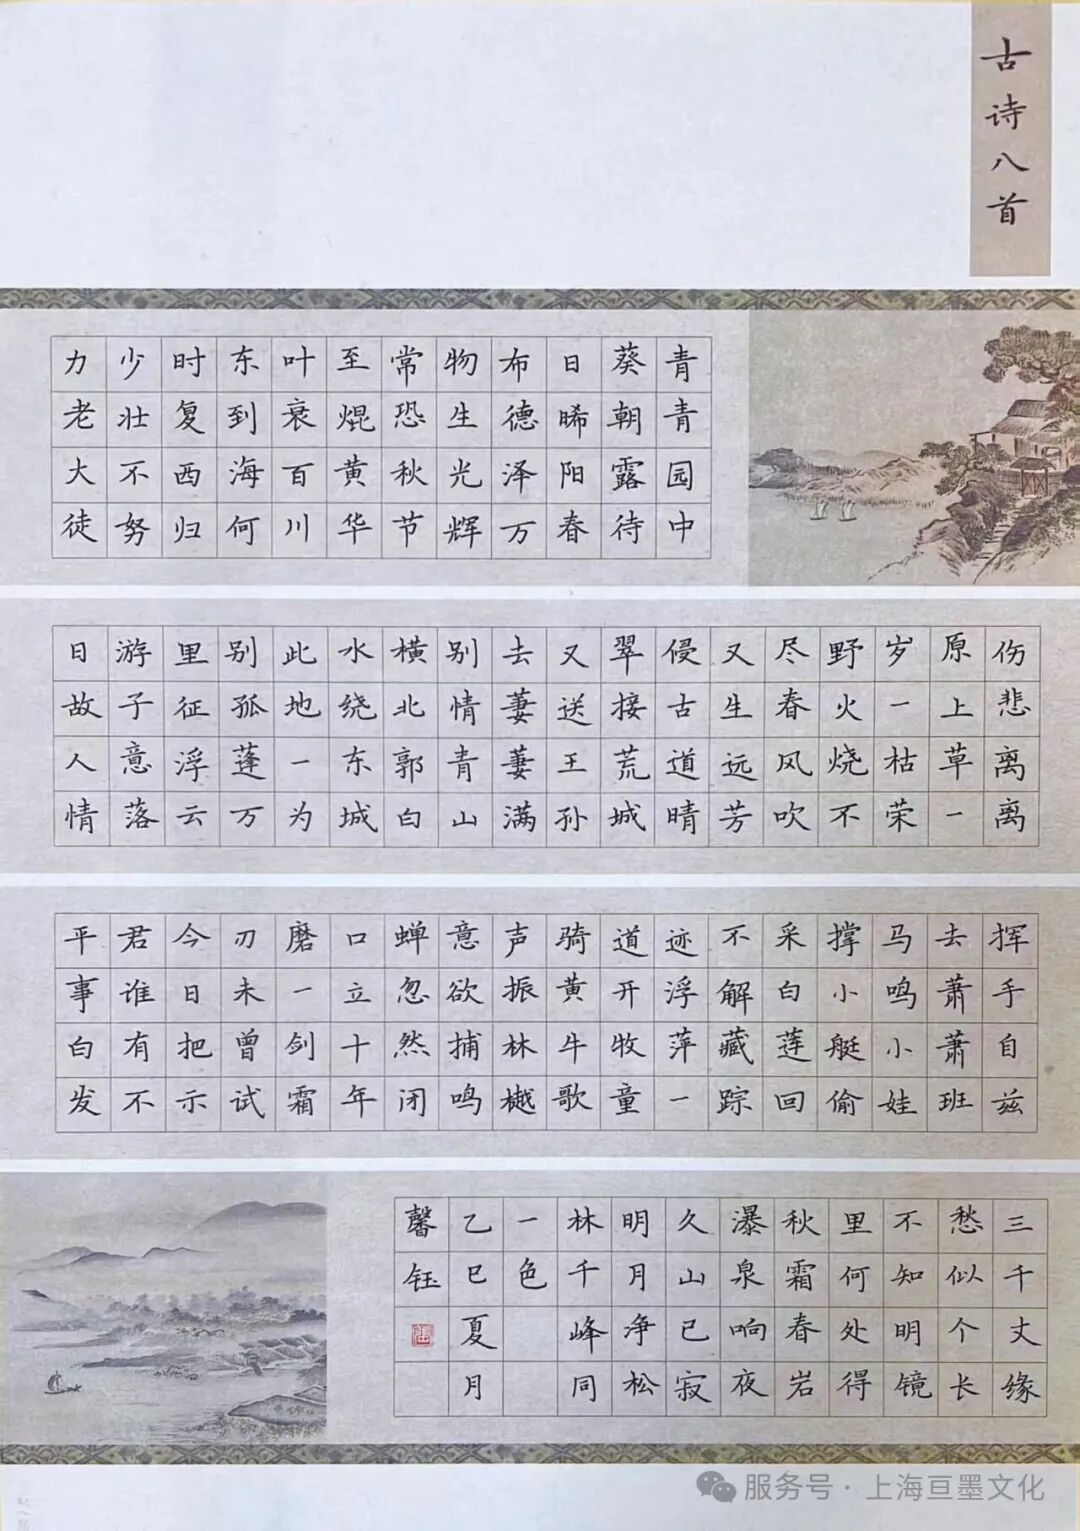 古诗八首
青青园中
葵朝露待
日晞阳春
布德泽万
物生光辉
常恐秋节
至焜黄华
叶衰百川
东到海何
时复西归
少壮不努
力老大徒
伤悲离离
原上草一
岁一枯荣
野火烧不
尽春风吹
又生远芳
侵古道晴
翠接荒城
又送王孙
去萋萋满
别情青山
横北郭白
水绕东城
此地一为
别孤蓬万
里征浮云
游子意落
日故人情
挥手自兹
去萧萧班
马鸣小娃
撑小艇偷
采白莲回
不解藏踪
迹浮萍一
道开牧童
骑黄牛歌
声振林樾
意欲捕鸣
蝉忽然闭
口立十年
磨一剑霜
刃未曾试
今日把示
君谁有不
平事白发
三千丈缘
愁似个长
不知明镜
里何处得
秋霜春岩
瀑泉响夜
久山已寂
明月净松
林千峰同
一色
乙巳夏月
馨钰
服务号·上海亘墨文化